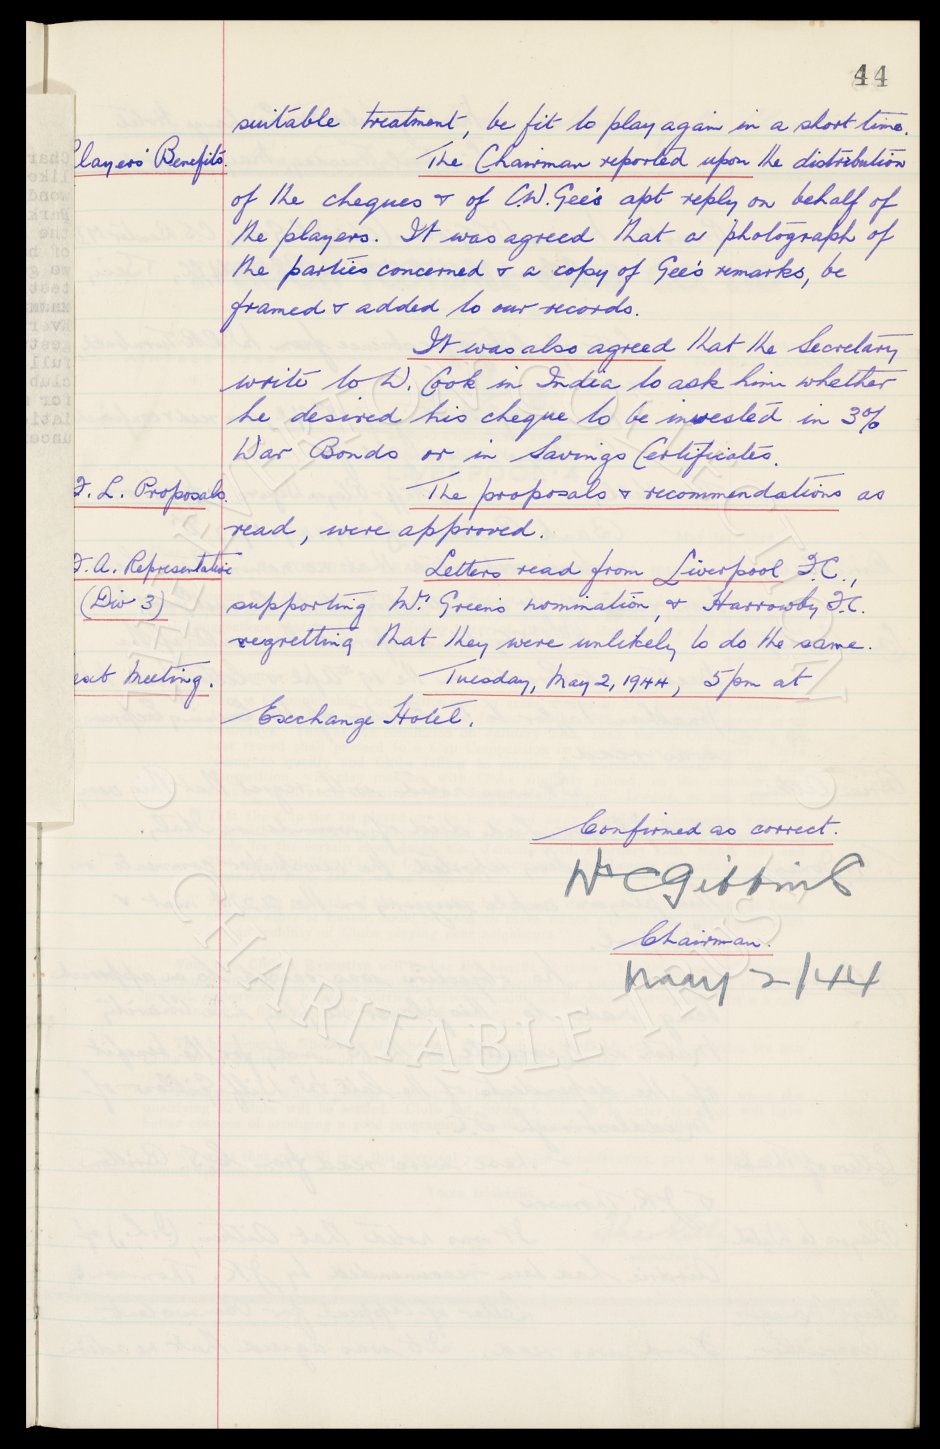 44
suitable treatment, be fit to play again in a short time.
Players' Benefits. The Chairman reported upon the distribution
of the cheques & of C.W. Gee's apt reply on behalf of
the players. It was agreed that a photograph of
the parties concerned & a copy of Gee's remarks, be
framed & added to our records.
It was also agreed that the Secretary
write to W. Cook in India to ask him whether
he desired his cheque to be invested in 3%
War Bonds or in Savings Certificates.
F. L. Proposals. The proposals & recommendations as
read, were approved.
F. A. Representative Letters read from Liverpool F.C.,
(Div 3) supporting Mr. Green's nomination, & Harrowby F.C.
regretting that they were unlikely to do the same.
ext Meeting. Tuesday, May 2, 1944, 5pm at
Exchange Hotel.
Confirmed as correct.
Wm C Gibbins
Chairman.
May 2/44
THE EVERTON COLLECTION
CHARITABLE TRUST